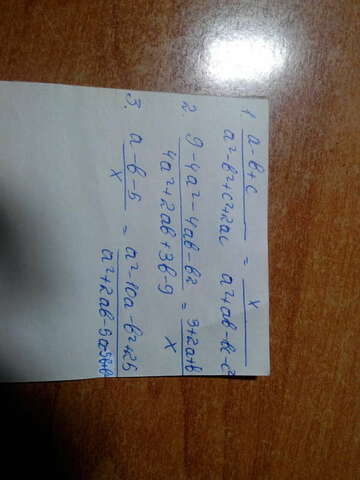 1. a-b+c / a²-b²+c²+2ac = x / a²+ab-bc-c²
2. 9-4a²-4ab-b² / 4a²+2ab+3b-9 = 3+2a+b / x
3. a-b-5 / x = a²-10a-b²+25 / a²+2ab-5a-5b+b²